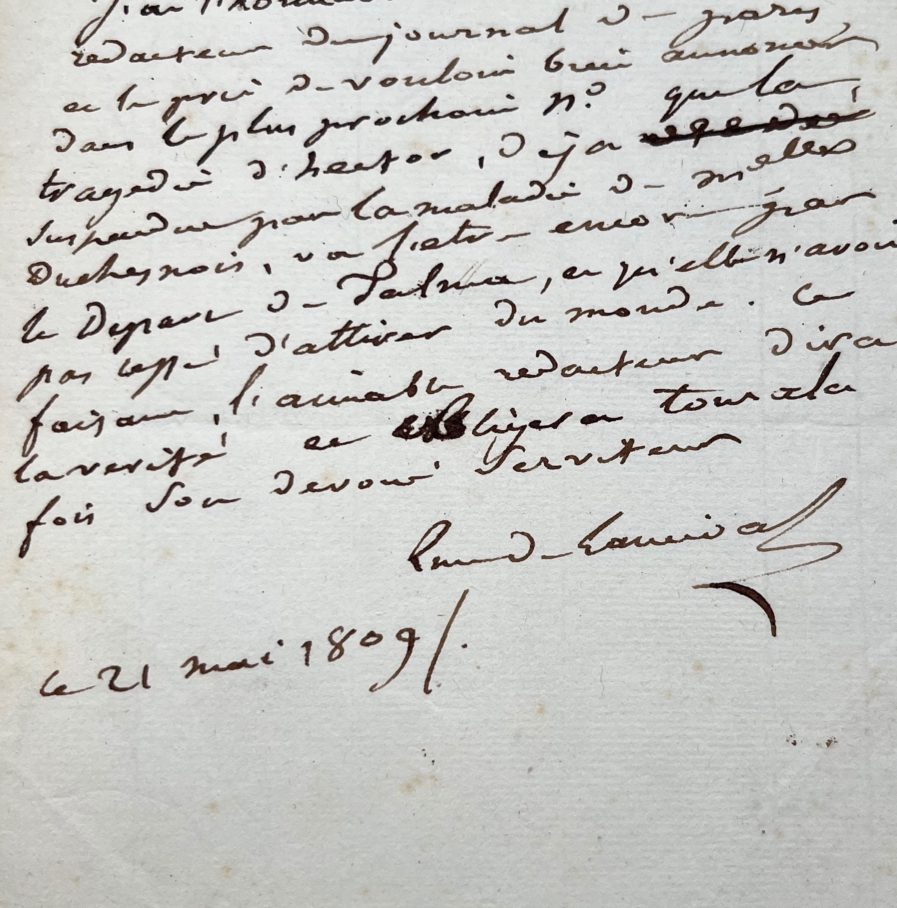 j'ai l'honneur
redacteur du journal de paris
et le prie de vouloir bien annoncer
dans le plus prochain n.o que la
tragedie d'hector, deja
suspendue par la maladie de melle
Duchesnois, va l'etre encore par
le Depart de Talma, et qu'elle n'avoit
pas cessé d'attirer du monde. ce
faisant, l'aimable redacteur dira
la verité et obligera tout a la
fois son devoué serviteur
Luce de Lancival
ce 21 mai 1809/.